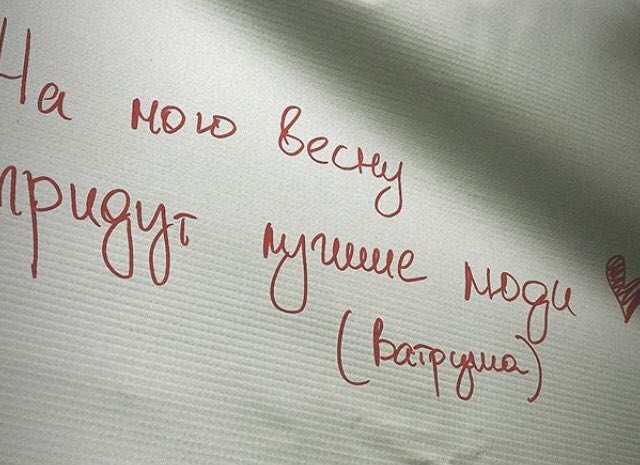 На мою весну
придут лучшие люди
(Ватруша)